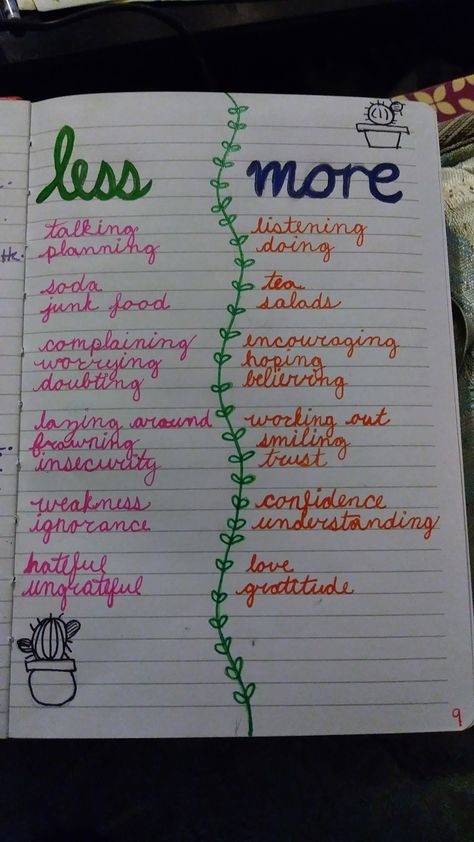 less
talking
planning
soda
junk food
complaining
worrying
doubting
lazing around
frowning
insecurity
weakness
ignorance
hateful
ungrateful
more
listening
doing
tea
salads
encouraging
hoping
believing
working out
smiling
trust
confidence
understanding
love
gratitude
9